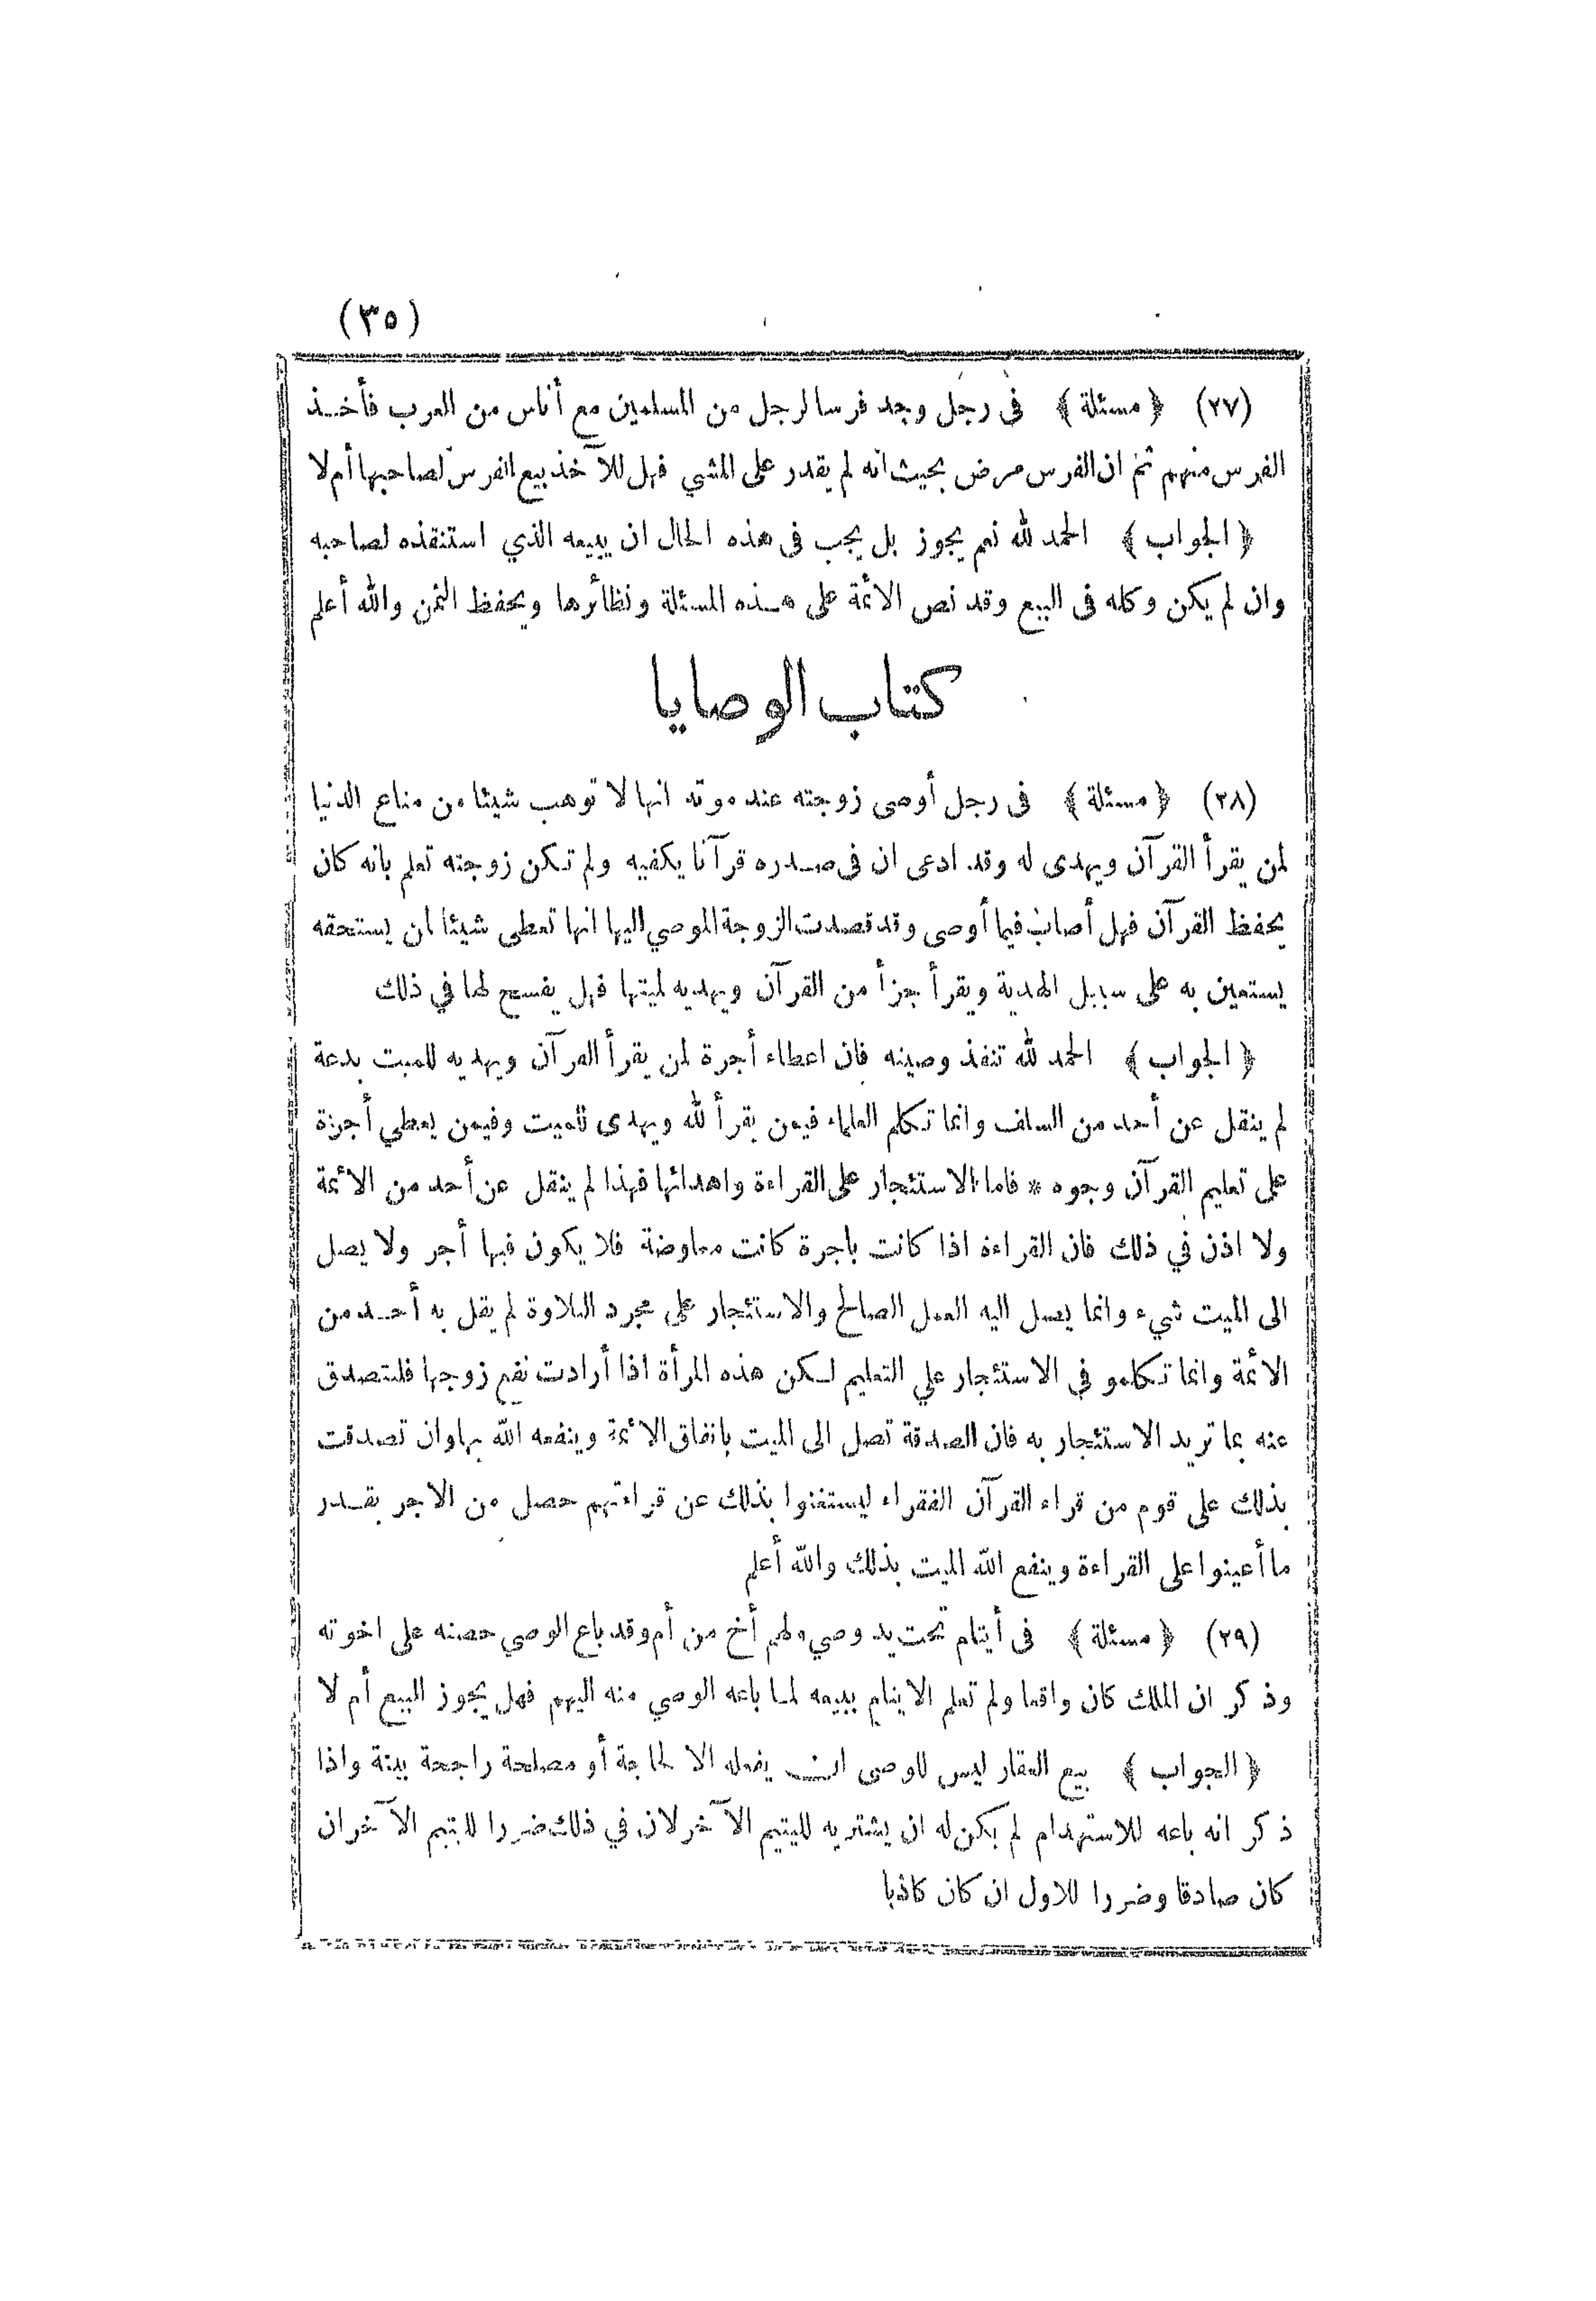 (٣٥)
(٢٧) ﴿ مسئلة ﴾ فى رجل وجد فرسا لرجل من المسلمين مع أناس من العرب فأخذ
الفرس منهم ثم ان الفرس مرض بحيث انه لم يقدر على المشي فهل للآخذ بيع الفرس لصاحبها أم لا
﴿ الجواب ﴾ الحمد لله نعم يجوز بل يجب فى هذه الحال ان يبيعه الذي استنقذه لصاحبه
وان لم يكن وكله فى البيع وقد نص الائمة على هذه المسئلة ونظائرها ويحفظ الثمن والله أعلم
كتاب الوصايا
(٢٨) ﴿ مسئلة ﴾ فى رجل أوصى زوجته عند موته انها لا توهب شيئا من متاع الدنيا
لمن يقرأ القرآن ويهدى له وقد ادعى ان فى صدره قرآنا يكفيه ولم تكن زوجته تعلم بانه كان
يحفظ القرآن فهل أصاب فيما أوصى وقد قصدت الزوجة الموصي اليها انها تعطى شيئا لمن يستحقه
يستعين به على سبيل الهدية ويقرأ جزأ من القرآن ويهديه لميتها فهل يفسح لها في ذلك
﴿ الجواب ﴾ الحمد لله تنفذ وصيته فان اعطاء أجرة لمن يقرأ القرآن ويهديه للميت بدعة
لم ينقل عن أحد من السلف وانما تكلم العلماء فيمن يقرأ لله ويهدى للميت وفيمن يعطي أجرة
على تعليم القرآن وجوه * فاما الاستئجار على القراءة واهدائها فهذا لم ينقل عن أحد من الائمة
ولا اذن في ذلك فان القراءة اذا كانت باجرة كانت معاوضة فلا يكون فيها أجر ولا يصل
الى الميت شيء وانما يصل اليه العمل الصالح والاستئجار على مجرد التلاوة لم يقل به أحد من
الائمة وانما تكلمو في الاستئجار علي التعليم لكن هذه المرأة اذا أرادت نفع زوجها فلتتصدق
عنه بما تريد الاستئجار به فان الصدقة تصل الى الميت باتفاق الائمة وينفعه الله بها وان تصدقت
بذلك على قوم من قراء القرآن الفقراء ليستغنوا بذلك عن قراءتهم حصل من الاجر بقدر
ما أعينوا على القراءة وينفع الله الميت بذلك والله أعلم
(٢٩) ﴿ مسئلة ﴾ فى أيتام تحت يد وصي ولهم أخ من أم وقد باع الوصي حصته على اخوته
وذكر ان الملك كان واقعا ولم تعلم الايتام ببيعه لما باعه الوصي منه اليهم فهل يجوز البيع أم لا
﴿ الجواب ﴾ بيع العقار ليس للوصى ان يفعله الا لحاجة أو مصلحة راجحة بينة واذا
ذكر انه باعه للاستهدام لم يكن له ان يشتريه لليتيم الآخر لان في ذلك ضررا لليتيم الآخر ان
كان صادقا وضررا للاول ان كان كاذبا